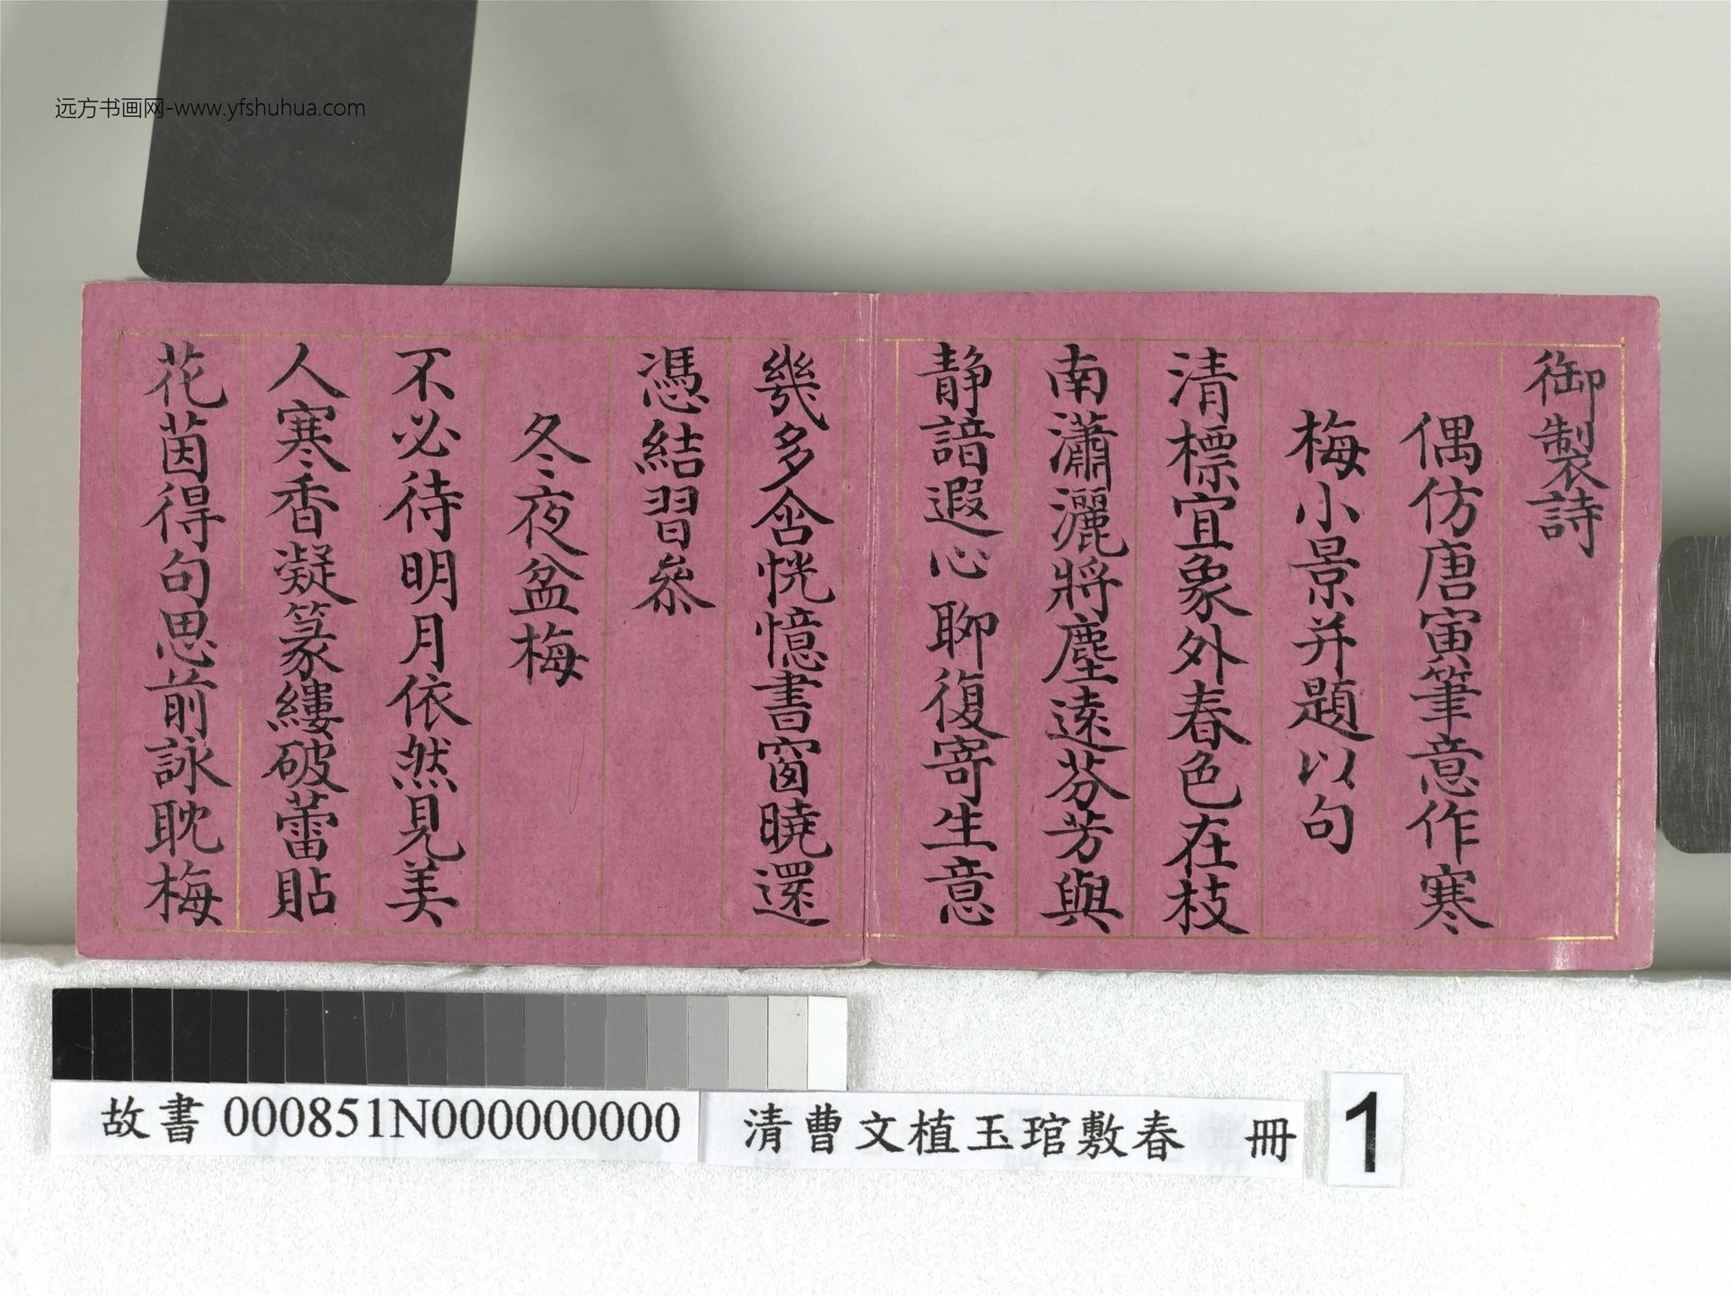 远方书画网-www.yfshuhua.com
御製詩
偶仿唐寅筆意作寒
梅小景并題以句
清標宜象外春色在枝
南瀟灑將塵遠芬芳與
静諳遐心聊復寄生意
幾多含恍憶書窗曉還
憑結習叅
冬夜盆梅
不必待明月依然見美
人寒香凝篆縷破蕾貼
花茵得句思前詠耽梅
故書 000851N000000000 清曹文植玉琯敷春 冊 1